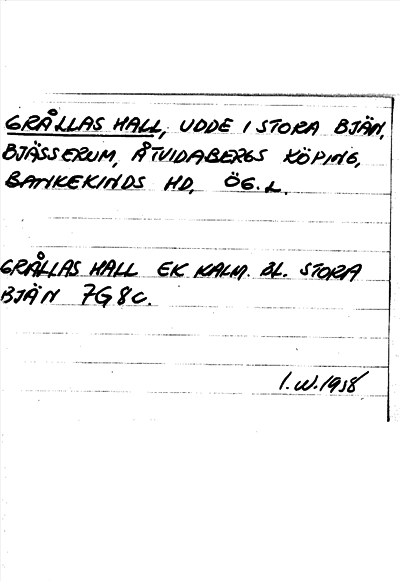 GRÅLLAS HALL, UDDE I STORA BJÄN,
BJÄSSERUM, ÅTVIDABERGS KÖPING,
BANKEKINDS HD, ÖG. L.
GRÅLLAS HALL EK KALM. BL. STORA
BJÄN 7G8c.
I.W. 1958